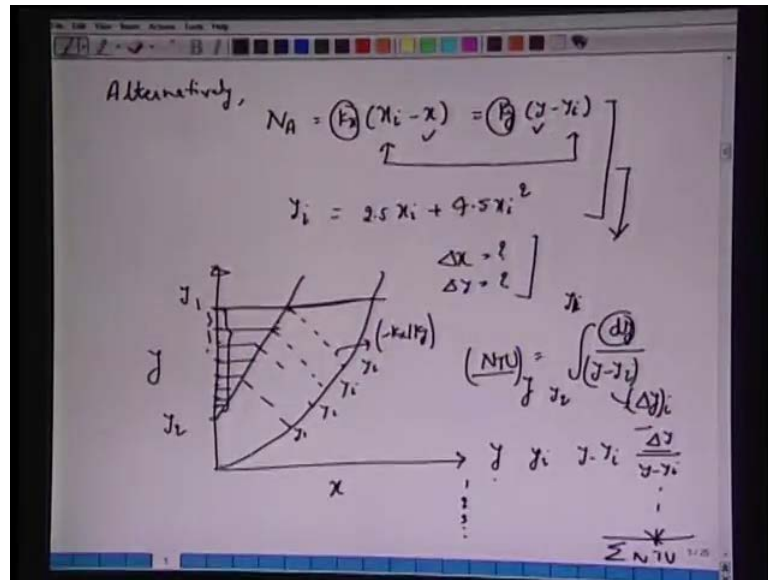 File Edit View Insert Actions Tools Help
Alternatively,
N_A = k_x (x_i - x) = k_y (y - y_i)
y_i = 2.5 x_i + 4.5 x_i^2
Δx = ?
Δy = ?
y_1
(-k_x/k_y)
y_i
y_i
y_i
y_i
y
y_2
x
(NTU)_y = ∫ dy/(y-y_i)
y_2
(Δy)_i
y y_i y-y_i Δy/(y-y_i)
1
2
3
Σ NTU